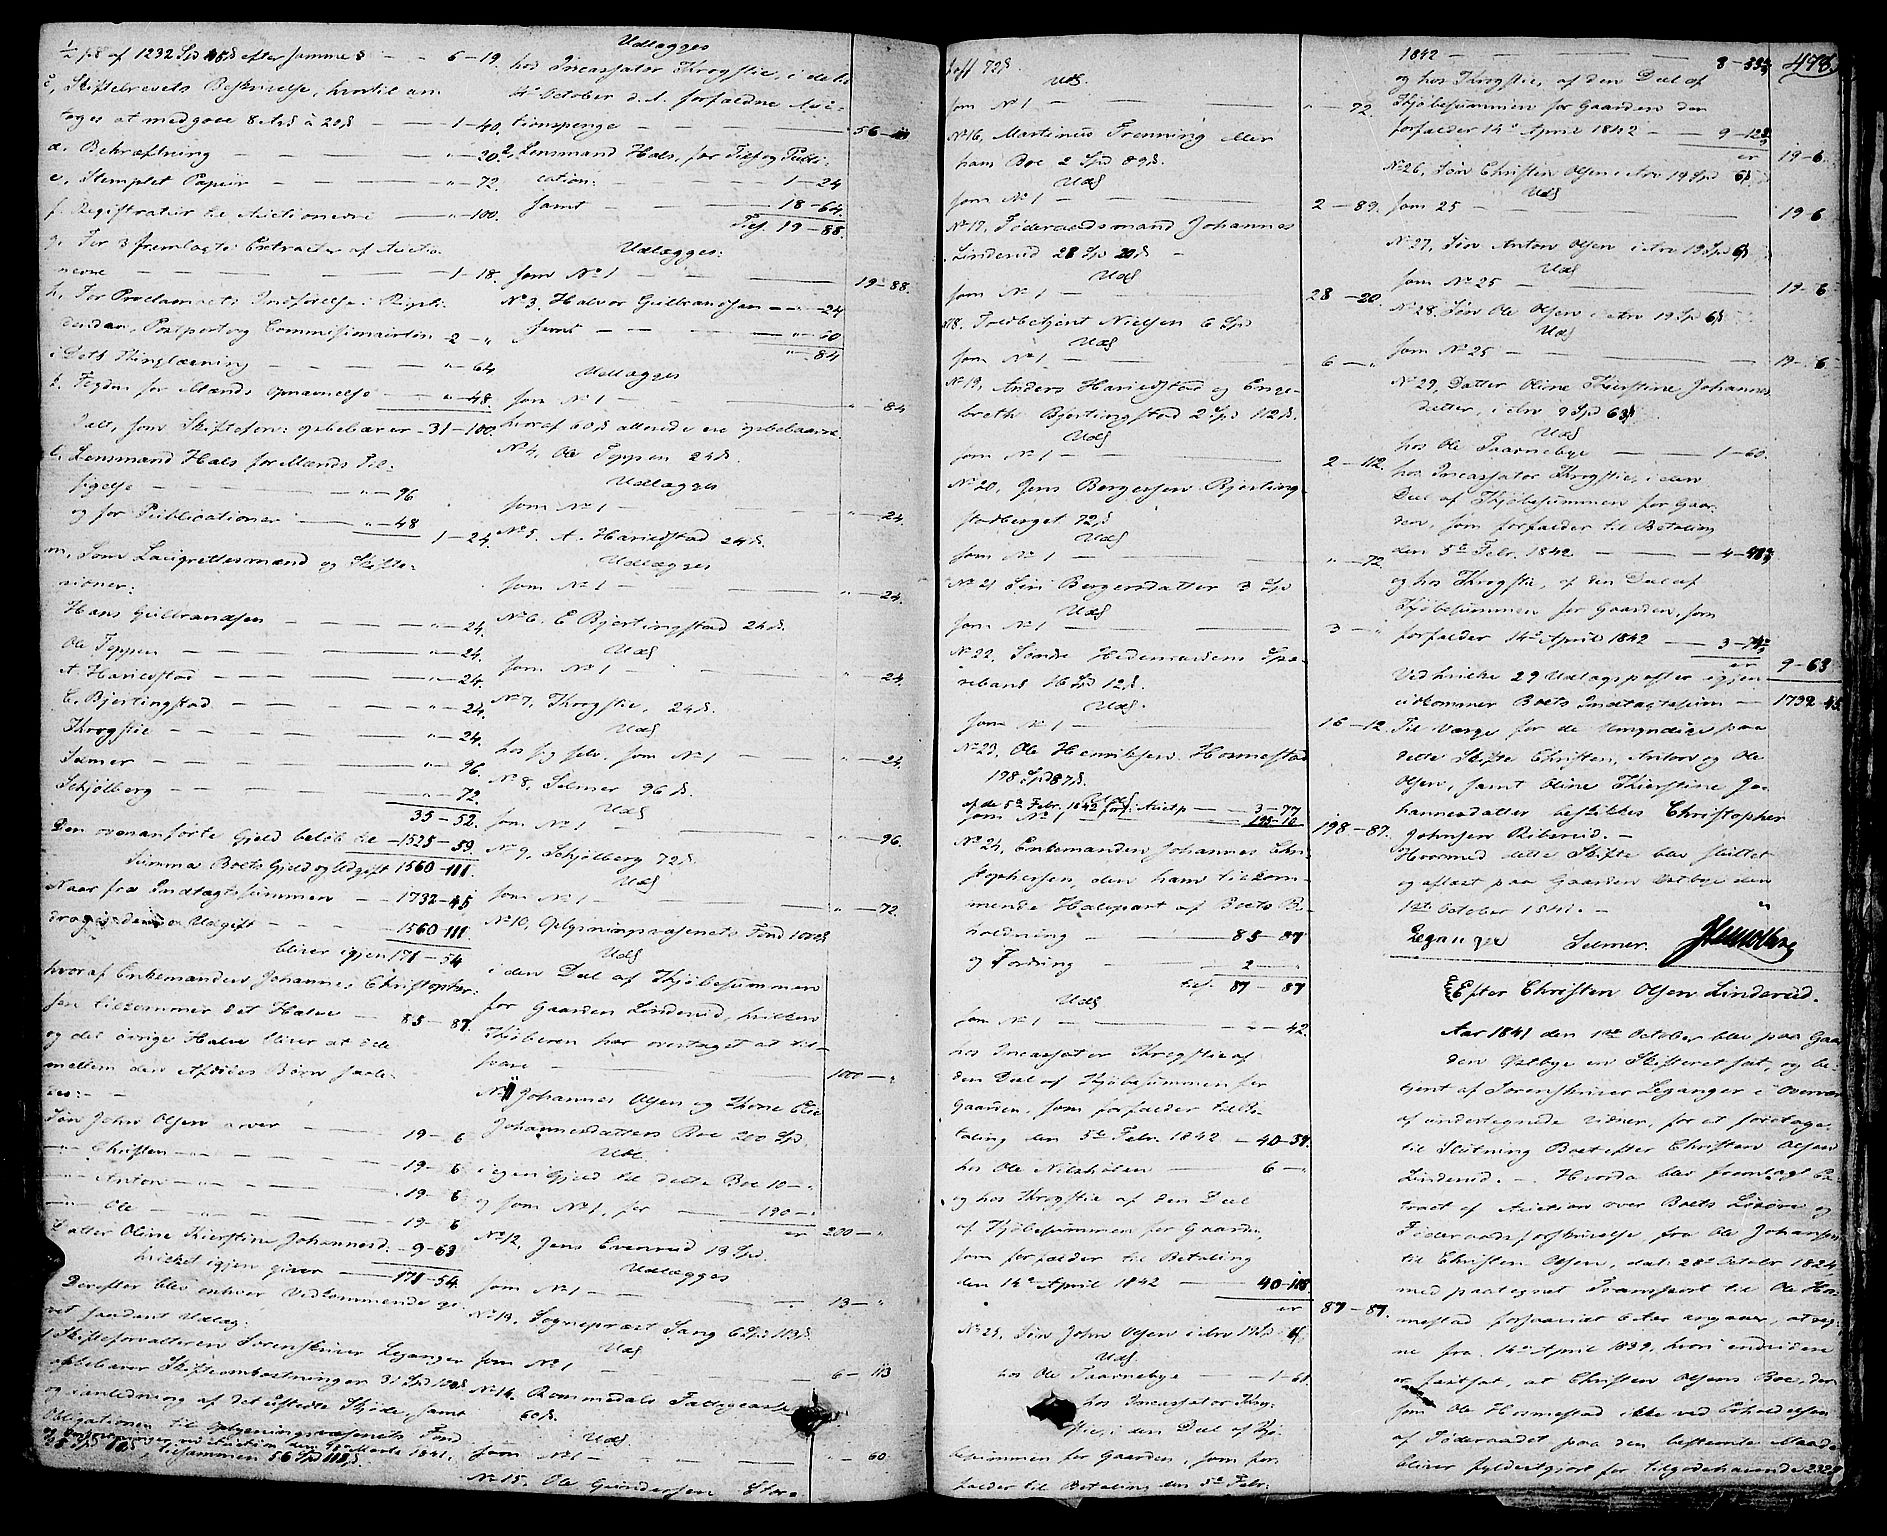 ½ p.C. af 1232 Spd 15 s efter samme § — 6-19.
c, Skiftebrevets Beskrivelse, hvortil an-
toges at medgaae 8 Ark à 20 s — 1-40.
d. Bekræftning — — "-20.
e, Stemplet Papiir — — "-72.
f. Registratur til Auctionerne — "-100.
g. For 3 fremlagte Extracter af Auctio-
nerne — — — 1-18.
h, For Proclamaets Indførelse i Rigsti-
denden, Postport og Commissionairlön 2-"
i Dets Thinglæsning — — "-64
k. Fogden for Mænds Opnævnelse — "-48.
Ialt, som Skifteforv: opbebærer — 31-100.
l. Lensmand Hals for Mænds Til-
sigelse — — "-96
og for Publicationer — "-48
1-24.
m, Som Laugrettesmænd og Skifte-
Hans Gulbrandsen — — "-24.
Ole Toppen — — "-24.
A. Harildstad — — "-24.
E. Bjertingstad — — "-24.
Krogstie — — "-24.
Selmer — — "-96.
Schjölberg — — "-72.
35-52.
Den ovenanförte Gjeld beløb til — 1525-59.
Summa Boets Gjeld og Udgift 1560-111.
Naar fra Indtægtssummen — 1732-45
drages denne Udgift — 1560-111.
bliver igjen 171-54
hvoraf Enkemanden Johannes Christopher-
sen tilkommer det Halve — 85-87.
og det övrige Halve bliver at dele
mellem den Afdödes Börn saale-
des: —
Sön John Olsen arver — 19-6
— Christen — " — 19-6
— Anton — " — 19-6
— Ole — " — 19-6
Datter Oline Kierstine Johannesd. — 9-63
hvilket igjen giver — 171-54.
Derefter blev enhver Vedkommende gi-
vet saadant Udlæg:
1, Skifteforvalteren Sorenskriver Leganger
opbebærer Skifteomkostninger 31 Spd 100 s
og i anledning af det udstedte Skjöde, samt
Obligationen til Oplysningsvæsenets Fond
tilsammen 56 Spd 111 s.
Udlægges
hos Incassator Krogstie, i de til
4de October d. A. forfaldne Auc-
tionspenge — — 56-111
2, Lensmand Hals, for Tils. og Publi-
cation: — 1-24
samt — — 18-64.
Tils. 19-88.
Udlægges:
som No 1 — — 19-88.
No 3. Halvor Gulbrandsen — "-24
samt — — "-60
"-84
Udlægges
som No 1 — — "-84
hvoraf 60 s allerede ere opbebaarne.
No 4, Ole Toppen 24 s.
Udlægges
som No 1 — — "-24.
No 5. A. Harildstad 24 s.
Udlægges
som No 1 — — "-24.
No 6. E Bjertingstad 24 s.
Uds
som No 1 — — "-24.
No 7, Krogstie, 24 s.
Uds
hos sig selv, som No 1 — "-24.
No 8, Selmer 96 s.
Uds
som No 1 — — "-96.
No 9, Schjölberg 72 s.
Uds
som No 1 — — "-72.
No 10, Oplysningsvæsenets Fond 1000 s
Uds
i den Deel af Kjöbesummen
for Gaarden Linderud, hvilken
Kjöberen har overtaget at til-
svare — — 1000-"
No 11 Johannes Olsen og Thore Elie
Johannesdatters Boe 200 Spd.
Uds.
i egen Gjeld til dette Boe 10-"
og som No 1, for — 190-"
er 200-"
No 12, Jens Evenrud 13 Spd.
Udlægges
som No 1 — — 13-"
No 13, Sognepræst Sang 6 Spd 113 s.
Uds
som No 1 — — 6-113
No 14. Rommedals Fattigcasse
60 s.
Uds
som No 1 — — "-60
No 15. Ole Gundersen Store-
hoff 72 s.
Uds.
som No 1 — — "-72.
No 16, Martinus Frenning eller
hans Boe 2 Spd 89 s.
Uds
som No 1 — — 2-89.
No 17, Föderaadsmand Johannes
Linderud 28 Spd 20 s —
Uds
som No 1 — — 28-20
No 18. Toldbetjent Nielsen 6 Spd
Uds
som No 1 — — 6-"
No 19, Anders Harildstad og Enge-
breth Bjertingstad 2 Spd 112 s.
Uds
som No 1 — — 2-112.
No 20, Jens Bergersen Bjerting-
stadberget 72 s
Uds
som No 1 — — "-72
No 21 Siri Bergersdatter 3 Spd
Uds
som No 1 — — 3-"
No 22, Söndre Hedemarkens Spa-
rebank 16 Spd 12 s.
Uds.
som No 1 — — 16-12.
No 23, Ole Henriksen Hosmestad
198 Spd 87 s.
af de 5te Febr. 1842 forf: Auctp — 3-77
som No 1 — 195-10
198-87.
No 24, Enkemanden Johannes Chri-
stophersen, den ham tilkom-
mende Halvpart af Boets Be-
holdning — — 85-87
og Fordring — — 2-"
tils. 87-87
Uds
som No 1 — — "-42.
hos Incassator Krogstie af
den Deel af Kjöbesummen for
Gaarden, som forfalder til Be-
taling den 5te Febr. 1842 — 40-57.
hos Ole Nilshölen — 6-"
og hos Krogstie af den Deel
af Kjöbesummen for Gaarden,
som forfalder til Betaling
den 14de April 1842 — 40-108.
er 87-87.
No 25, Sön John Olsen i Arv 19 Spd 6 s.
Uds.
hos Ole Taarnebye — 1-61.
hos Incassator Krog-
stie, i den Deel af Kjö-
besummen for Gaarden, som for-
falder til Betaling den 5te Febr.
1842 — — 8-53
og hos Krogstie, af den Deel af
Kjöbesummen for Gaarden der
forfalder 14de April 1842 — 9-12
er 19-6.
No 26, Sön Christen Olsen i Arv 19 Spd 6 s
Uds
som 25 — — 19-6
No 27, Sön Anton Olsen i Arv 19 Spd 6 s
Uds
som No 25 — — 19-6
No 28. Sön Ole Olsen i Arv 19 Spd 6 s
Uds
som No 25 — — 19-6.
No 29, Datter Oline Kierstine Johannes-
datter, i Arv 9 Spd 63 s
Uds
hos Ole Taarnebye — 1-60.
hos Incassator Krogstie, i den
Deel af Kjöbesummen for Gaar-
den, som forfalder til Betaling
den 5te Febr. 1842 — 4-40
og hos Krogstie, af den Deel af
Kjöbesummen for Gaarden, som
forfalder 14de April 1842 — 3-74
er 9-63
Ved hvilke 29 Udlægsposter igjen
udkommer Boets Indtægtssum — 1732-45.
Til Værge for de Umyndige paa
dette Skifte Christen, Anton og Ole
Olsen, samt Oline Kierstine Jo-
hannesdatter beskikkes Christopher
Johnsen Ribersud. —
Hvormed dette Skifte blev sluttet
og aflæst paa Gaarden Østbye den
1ste October 1841. —
Leganger Selmer.
478.
Efter Christen Olsen Linderud.
Aar 1841 den 1ste October blev paa Gaar-
den Østbye en Skifteret sat, og be-
tjent af Sorenskriver Leganger i Overvær
af undertegnede Vidner, for at foretage
til Slutning Boet efter Christen Olsen
Linderud. — Hvorda blev fremlagt Ex-
tract af Auction over Boets Lösöre og
Föderaadsforskrivelse, fra Ole Johansen
til Christen Olsen, dat: 28de October 1824
med paategnet Transport til Ole Hos-
mestad forsaavidt Efter angaaer, at reg-
ne fra 14de April 1839, hvori endvidere
er fastsat, at Christen Olsens Boe, der-
som Ole Hosmestad ikke ved Erholdelsen
af Föderaadet paa den bestemte Maade
bliver fyldestgjort for tilgodehavende 232 S